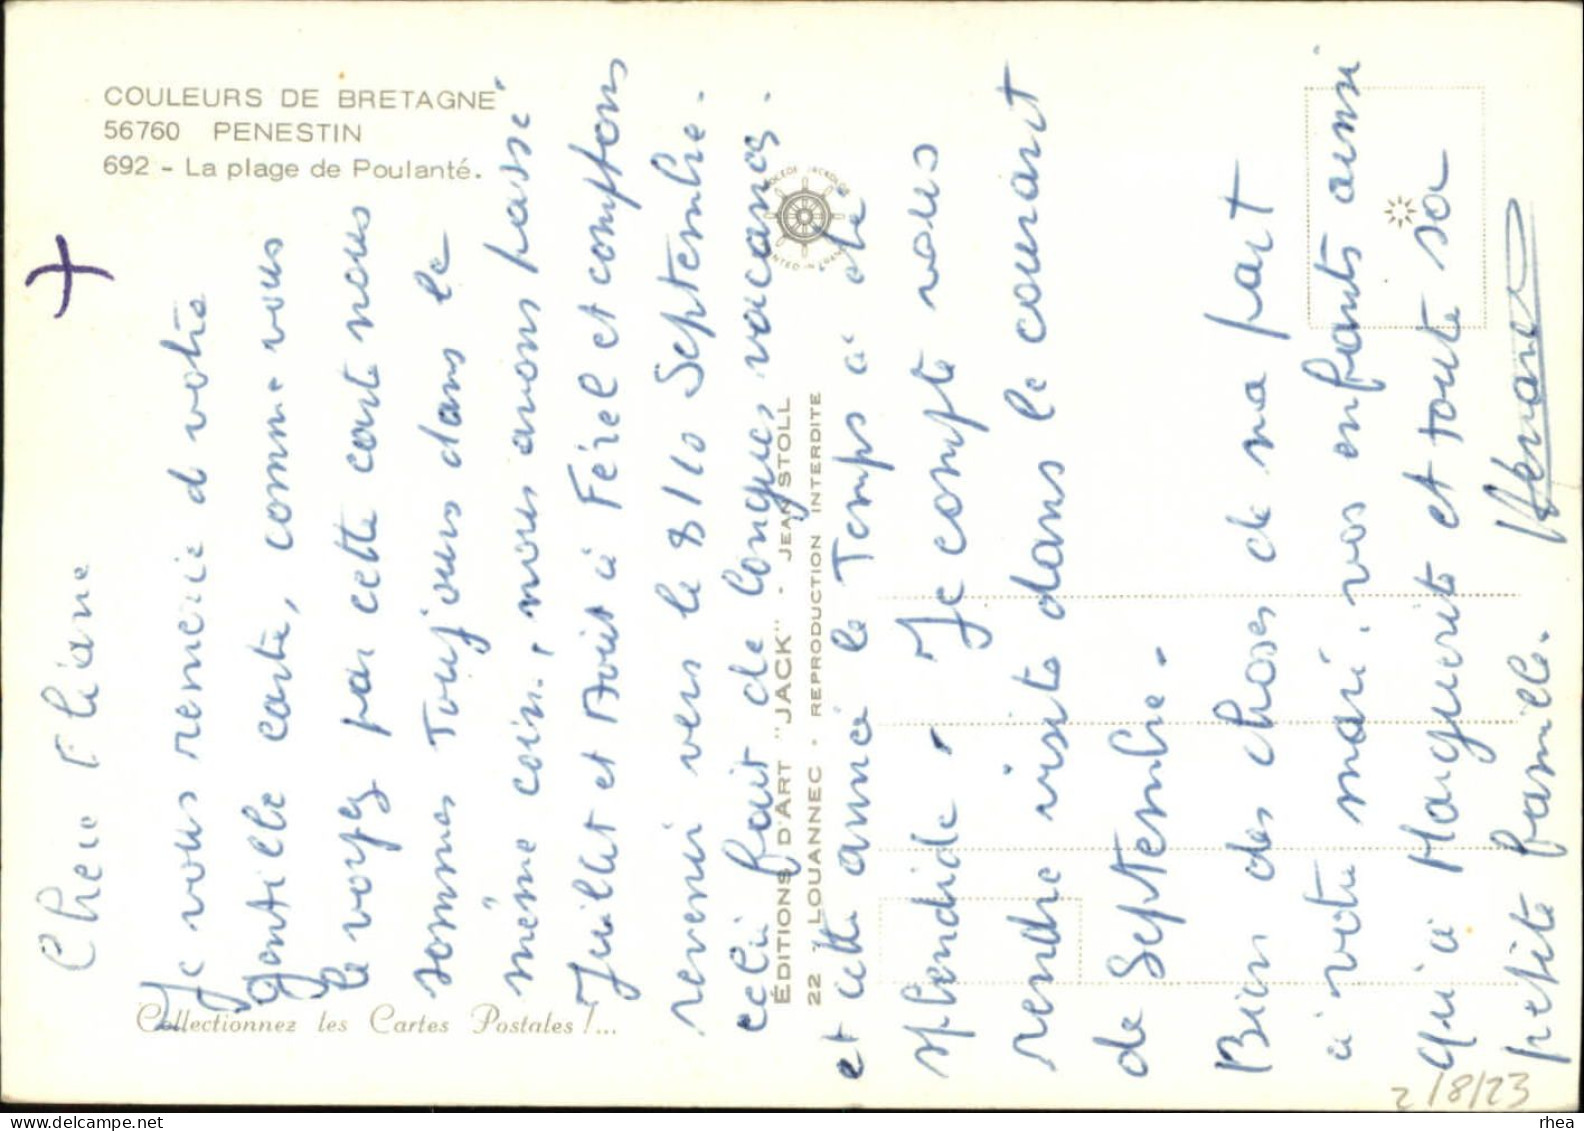 COULEURS DE BRETAGNE
56760 PENESTIN
692 - La plage de Poulanté.
Chère Eliane
Je vous remercie d votre
gentille carte, comme vous
le voyez par cette carte nous
sommes Toujours dans le
même coin, nous avons passé
Juillet et Août à Férel et comptons
revenir vers le 8/10 Septembre.
celà fait de longues vacances.
et cette année le Temps a été
splendide. Je compte vous
rendre visite dans le courant
de Septembre.
Bien des choses de ma part
à votre mari, vos enfants ainsi
qu'à Marguerite et toute sa
petite famille.
Collectionnez les Cartes Postales !...
ÉDITIONS D'ART "JACK" - JEAN STOLL
22 - LOUANNEC - REPRODUCTION INTERDITE
2/8/23
rhea